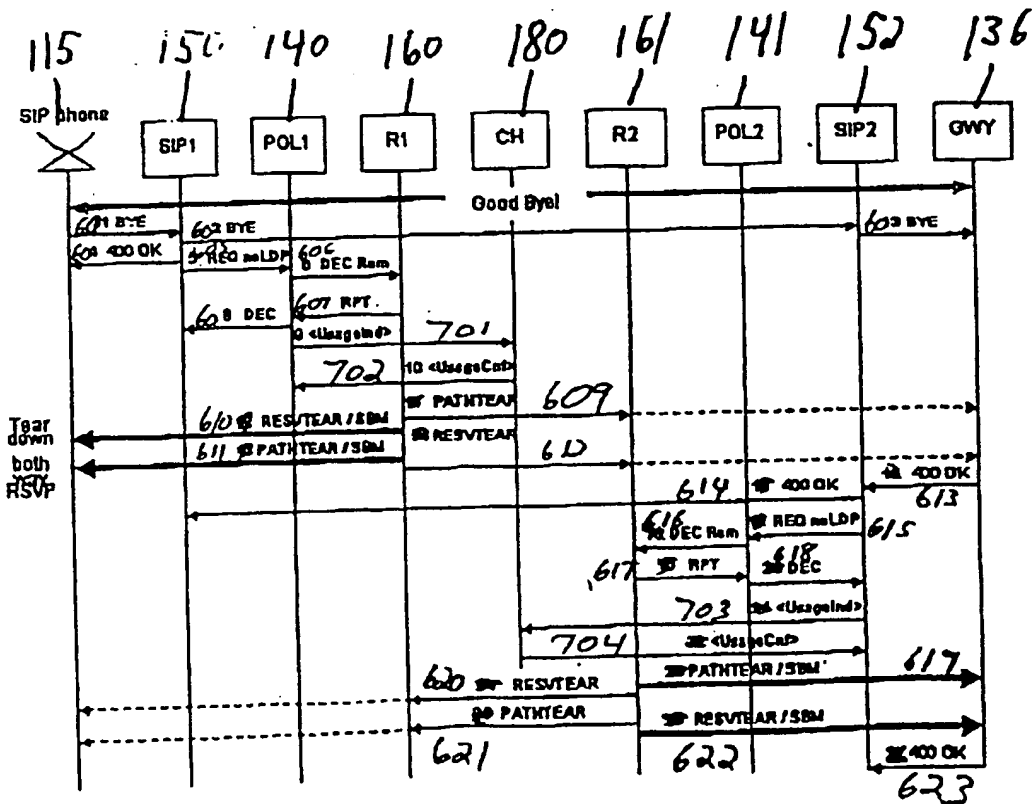 115 150 140 160 180 161 141 152 136
SIP phone
SIP1 POL1 R1 CH R2 POL2 SIP2 GWY
Good Bye!
601 BYE 602 BYE 603 BYE
604 400 OK REQ noLDP 606 DEC Rem
607 RPT
608 DEC
<UsageInd> 701
702 10 <UsageCnf>
PATHTEAR 609
Tear
down
both
way
RSVP
610 RESVTEAR / SBM RESVTEAR
611 PATHTEAR / SBM 612
400 OK
614 400 OK 613
616 DEC Rem REQ noLDP 615
617 RPT 618 DEC
703 <UsageInd>
704 <UsageCnf>
PATHTEAR / SBM 617
620 RESVTEAR
PATHTEAR RESVTEAR / SBM
621 622 400 OK
623